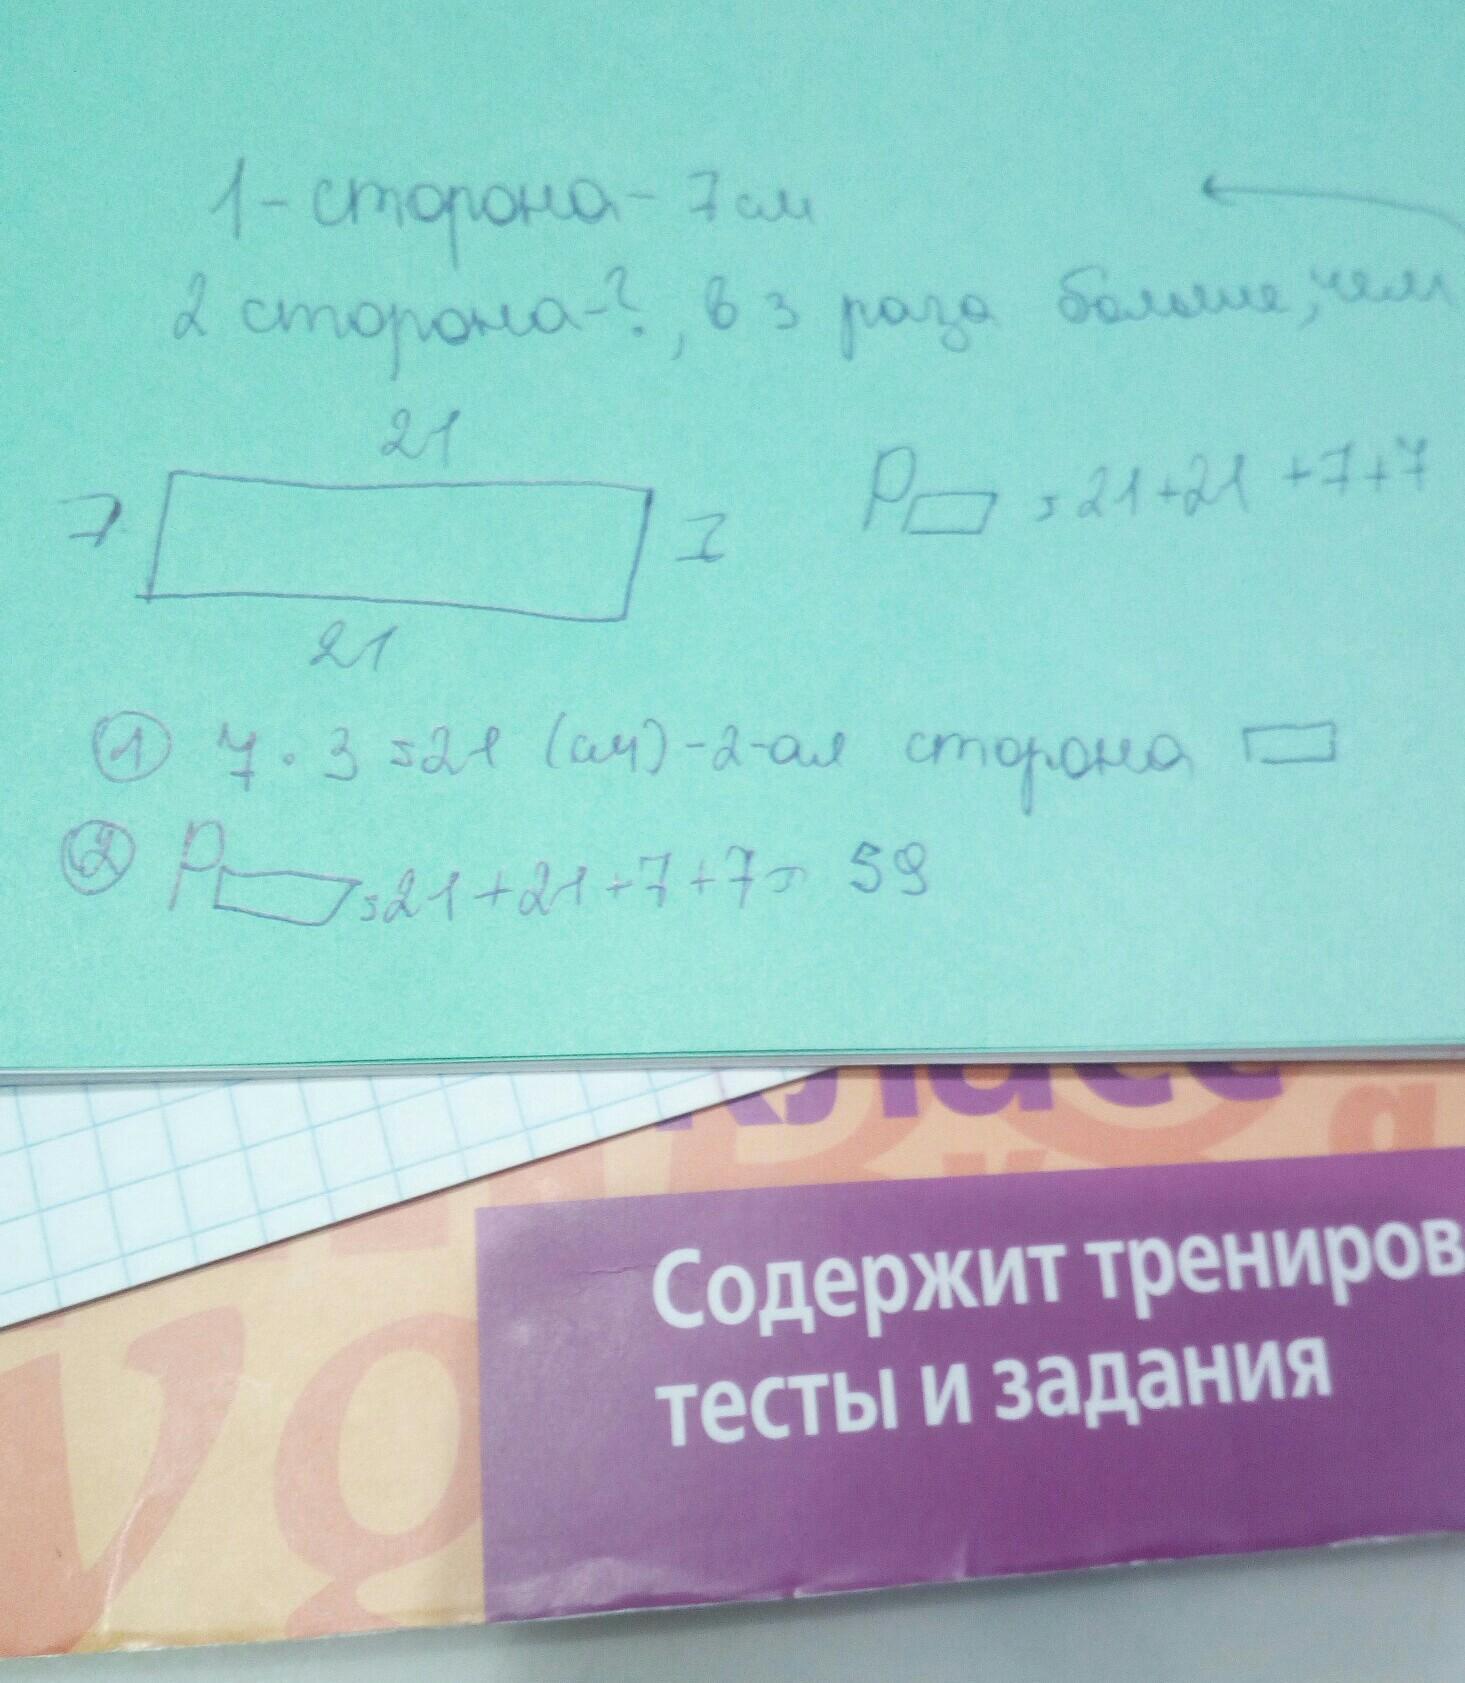 1 - сторона - 7 см
2 сторона - ?, в 3 раза больше, чем
21
7
7
21
P = 21 + 21 + 7 + 7
① 7 · 3 = 21 (см) - 2-ая сторона
② P = 21 + 21 + 7 + 7 = 59
класс
Содержит трениров
тесты и задания